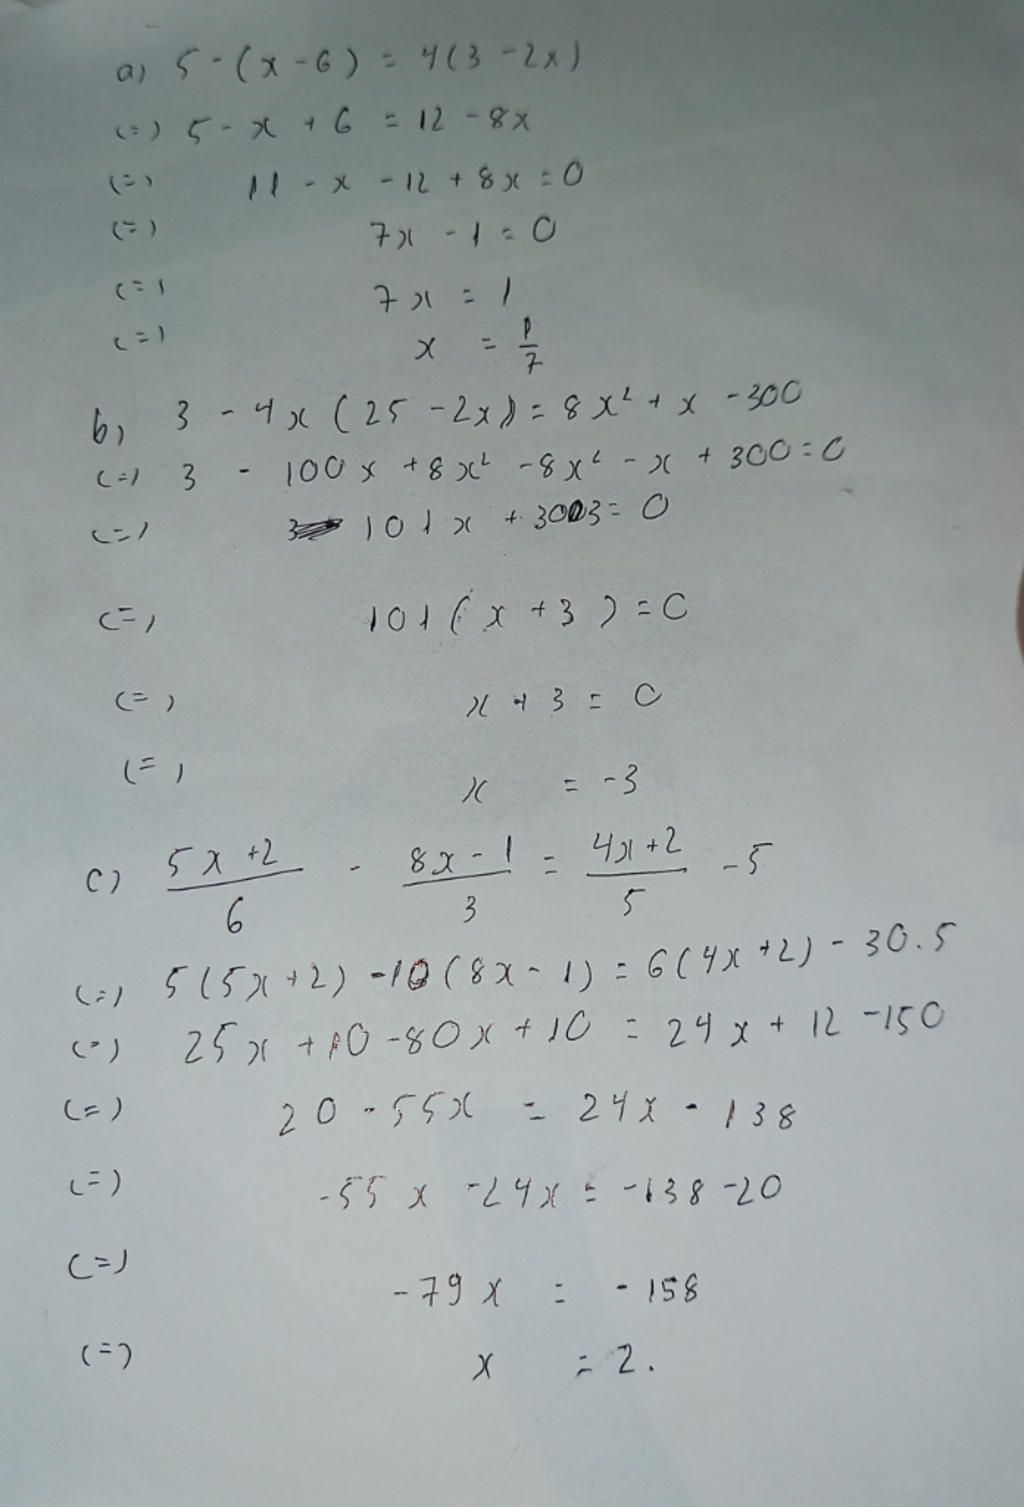 a) 5 - (x - 6) = 4(3 - 2x)
(=) 5 - x + 6 = 12 - 8x
(=) 11 - x - 12 + 8x = 0
(=) 7x - 1 = 0
(=) 7x = 1
(=) x = 1/7
b) 3 - 4x(25 - 2x) = 8x² + x - 300
(=) 3 - 100x + 8x² - 8x² - x + 300 = 0
(=) 101x + 303 = 0
(=) 101(x + 3) = 0
(=) x + 3 = 0
(=) x = -3
c) (5x + 2)/6 - (8x - 1)/3 = (4x + 2)/5 - 5
(=) 5(5x + 2) - 10(8x - 1) = 6(4x + 2) - 30.5
(=) 25x + 10 - 80x + 10 = 24x + 12 - 150
(=) 20 - 55x = 24x - 138
(=) -55x - 24x = -138 - 20
(=) -79x = -158
(=) x = 2.